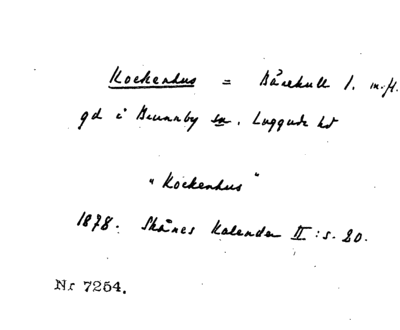 Kockenhus = Bårekull 1. m. fl.
gd i Brunnby sn. Luggude hd
"Kockenhus"
1878. Skånes Kalender II : s. 20.
Nr 7254.